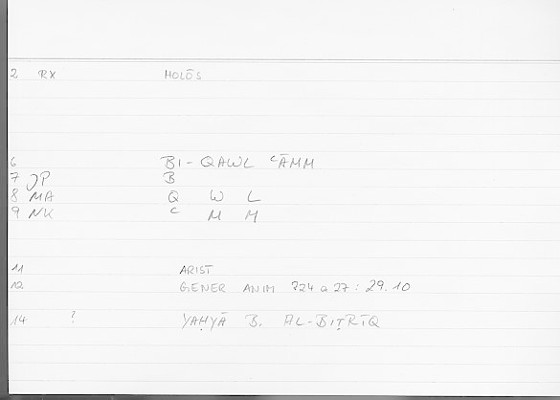 2 RX HOLŌS
6 BI- QAWL ʿĀMM
7 JP B
8 MA Q W L
9 NK ʿ M M
11 ARIST
12 GENER ANIM 724 a 27 : 29.10
14 ? YAḤYĀ B. AL-BIṬRĪQ